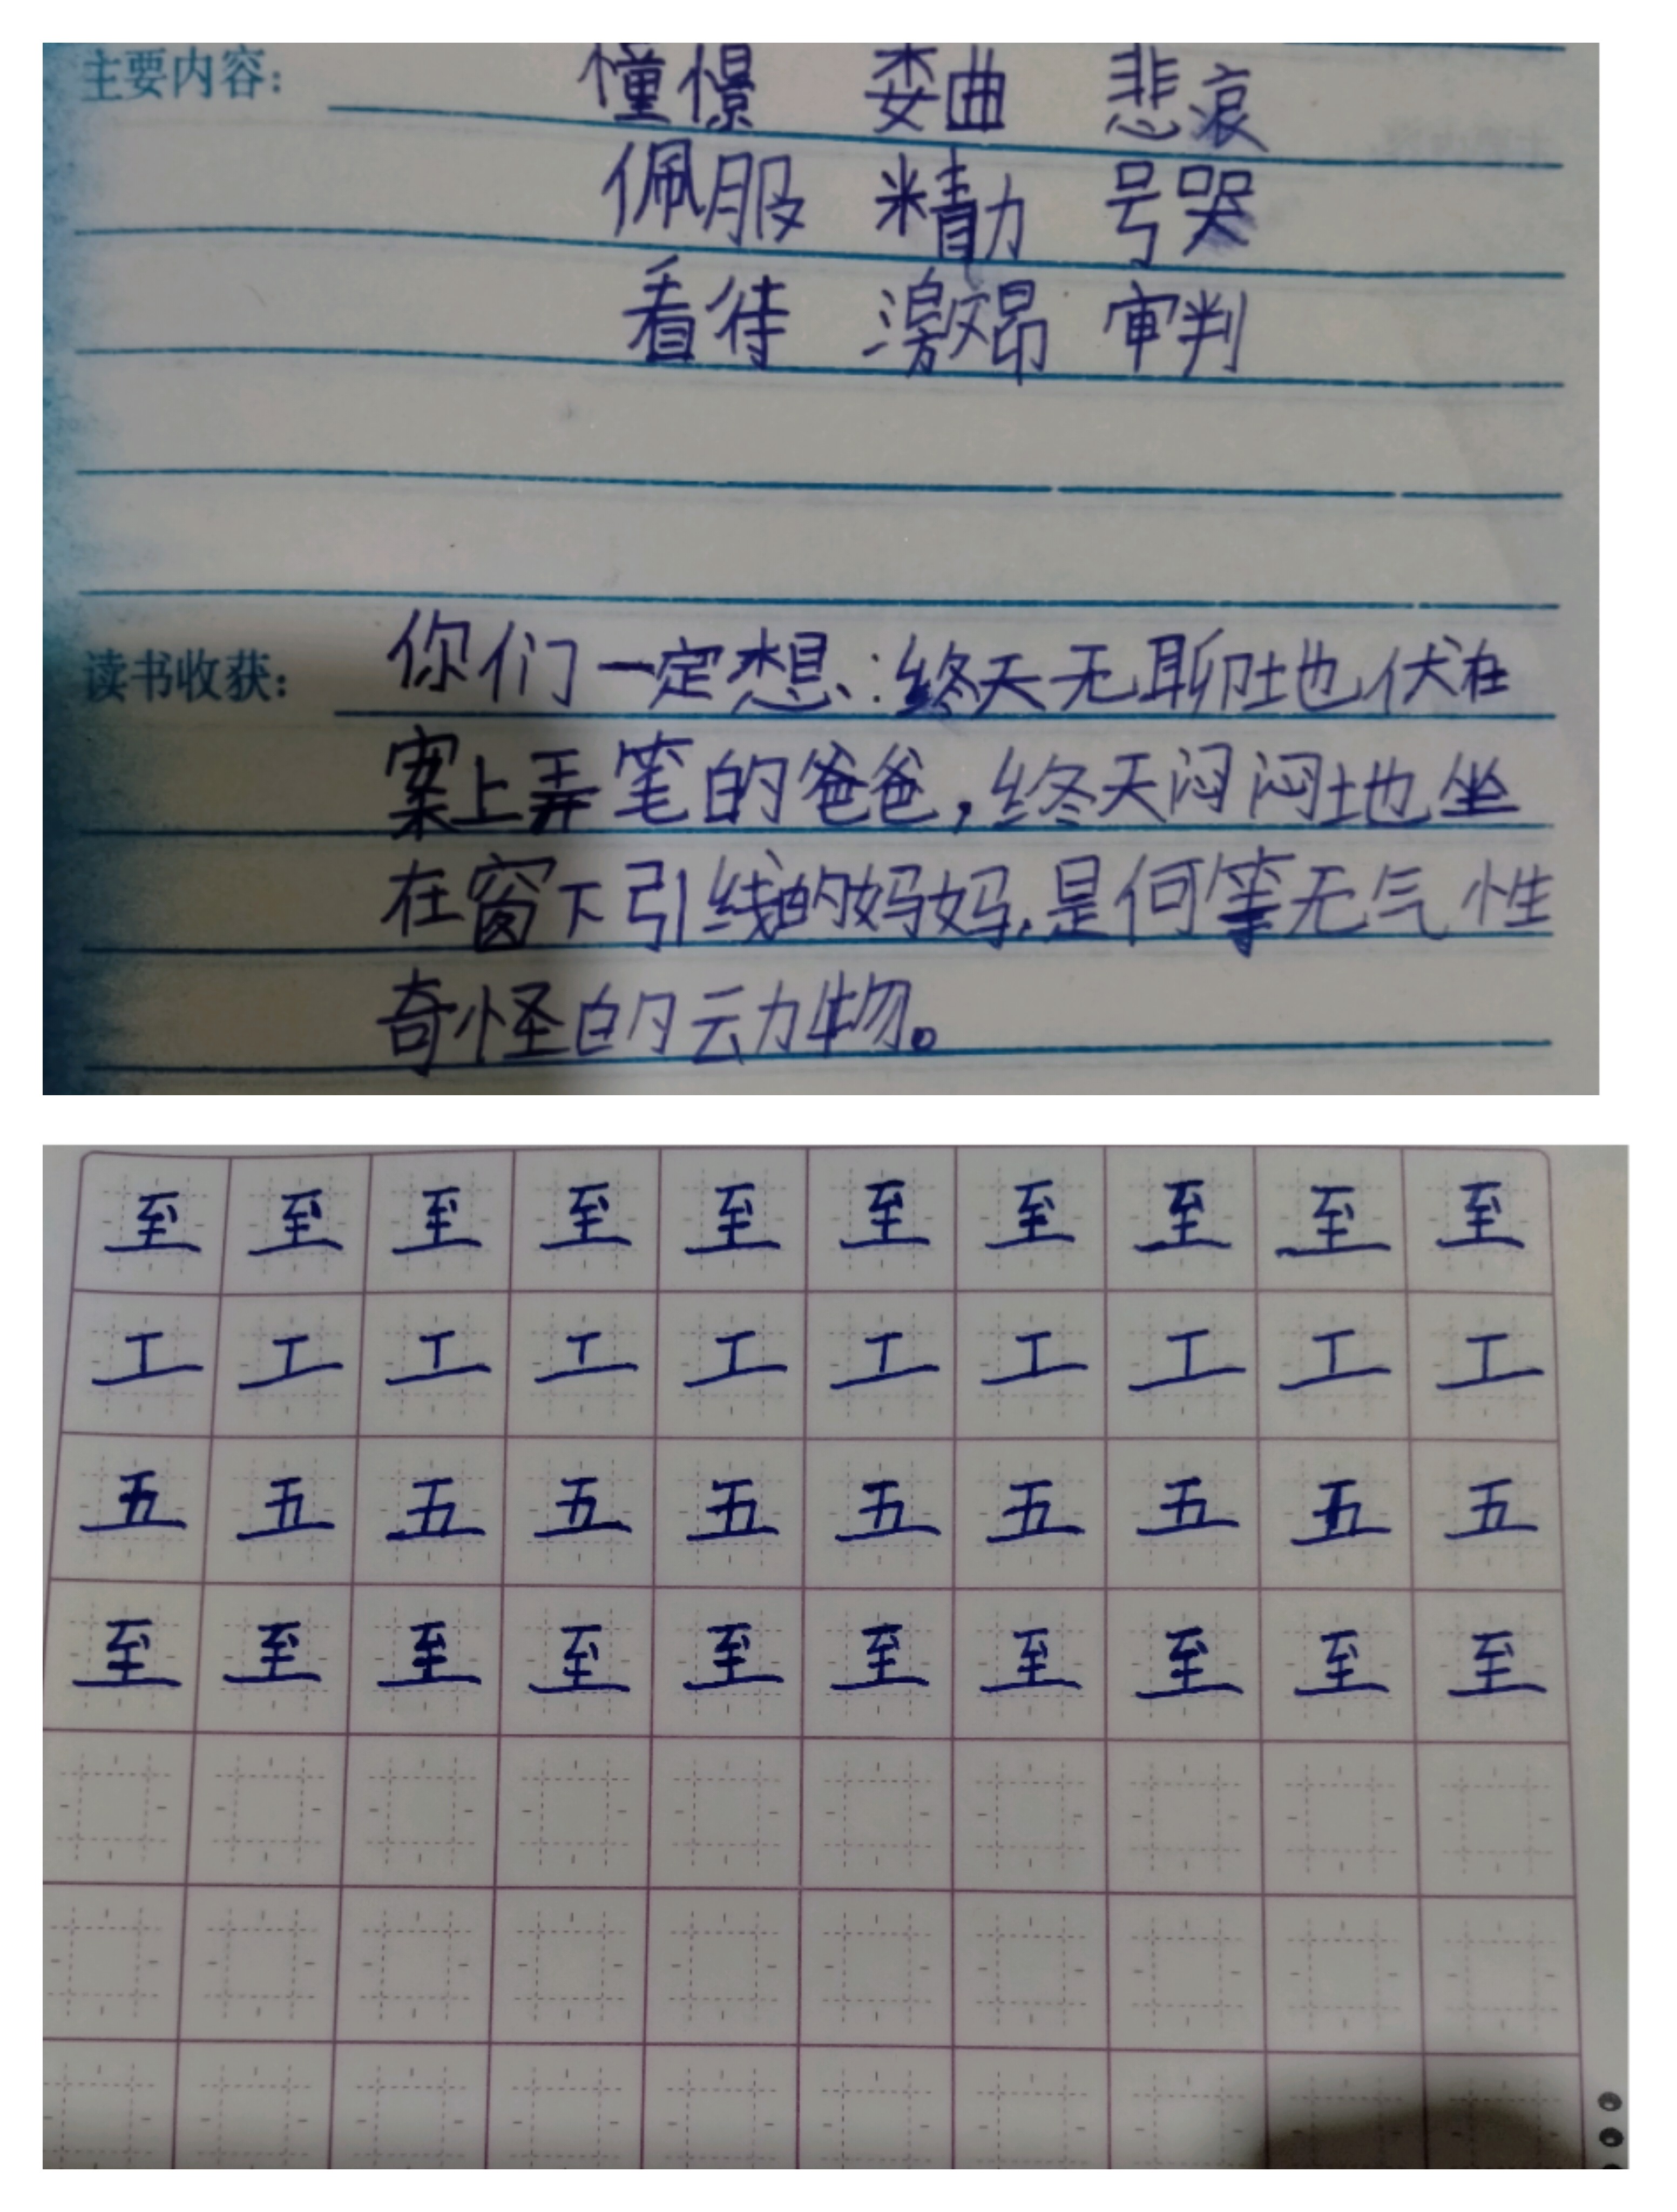 主要内容: 憧憬 委曲 悲哀
佩服 精力 号哭
看待 激昂 审判
读书收获: 你们一定想:终天无聊地伏在
案上弄笔的爸爸,终天闷闷地坐
在窗下引线的妈妈,是何等无气性
奇怪的动物。
至 至 至 至 至 至 至 至 至 至
工 工 工 工 工 工 工 工 工 工
五 五 五 五 五 五 五 五 五 五
至 至 至 至 至 至 至 至 至 至